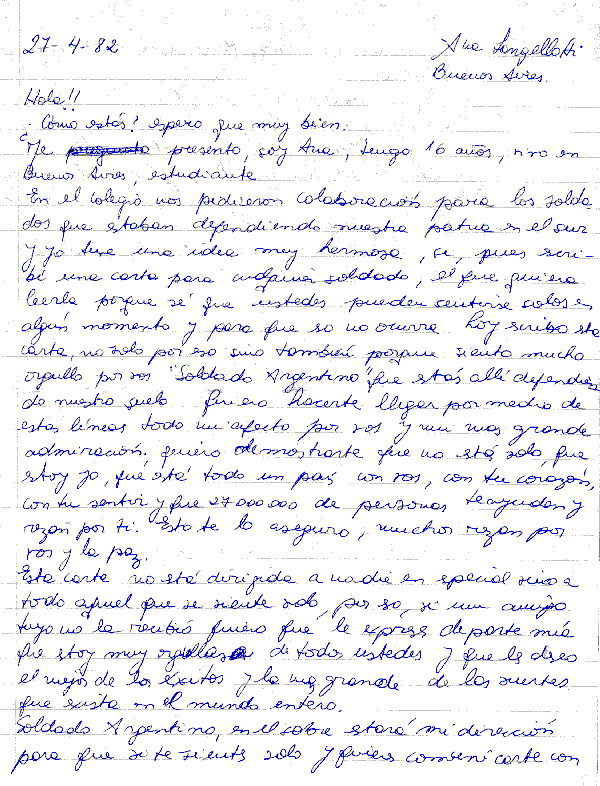 27-4-82
Ana Langellotti
Buenos Aires.
Hola!!
¿Cómo estás? espero que muy bien.
Me presento, soy Ana, tengo 16 años, vivo en
Buenos Aires, estudiante
En el colegio nos pidieron colaboración para los solda
dos que estaban defendiendo nuestra patria en el sur
y yo tuve una idea muy hermosa, si, pues escri-
bí una carta para cualquier soldado, el que quiera
leerla porque sé que ustedes pueden sentirse solos en
algún momento y para que eso no ocurra hoy escribo esta
carta, no solo por eso sino también porque siento mucho
orgullo por vos "Soldado Argentino" que estás allí defendien
do nuestro suelo Quiero hacerte llegar por medio de
estas líneas todo mi afecto por vos y mi mas grande
admiración. quiero demostrarte que no está solo, que
estoy yo, que está todo un país con vos, con tu corazón,
con tu sentir y que 27000000 de personas te ayudan y
rezan por ti. Esto te lo aseguro, muchos rezan por
vos y la paz.
Esta carta no está dirigida a nadie en especial sino a
todo aquel que se siente solo, por eso, si un amigo
tuyo no la recibió quiero que le expreses de parte mía
que estoy muy orgullosa de todos ustedes y que les deseo
el mejor de los éxitos y la mas grande de las suertes
que exista en el mundo entero.
Soldado Argentino, en el sobre estará mi dirección
para que si te sientes solo y quieres comunicarte con